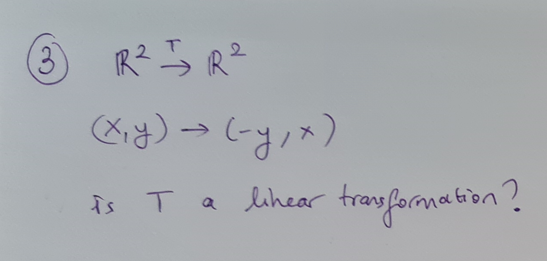 ③ ℝ² T→ ℝ²
(x,y) → (-y, x)
is T a linear transformation?